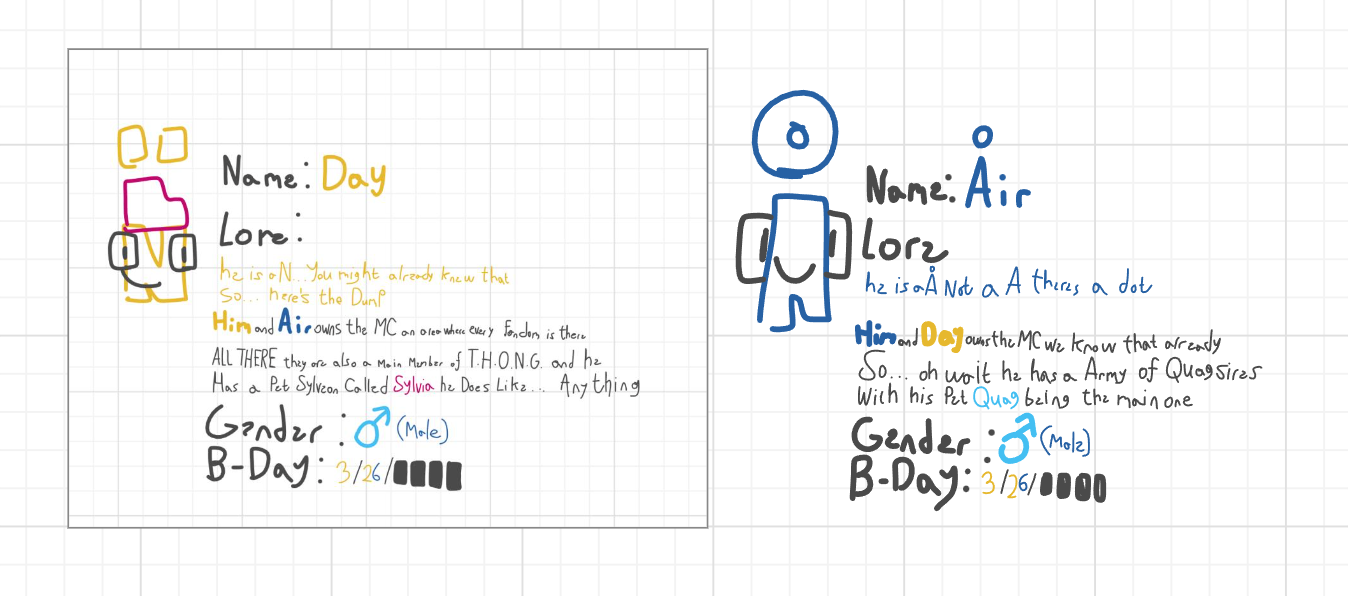 Name: Day
Lore:
he is a N... You might already knew that
So... here's the Dump
Him and Air owns the MC an area where every Fandom is there
ALL THERE they are also a Main Member of T.H.O.N.G. and he
Has a Pet Sylveon Called Sylvia he Does Like... Anything
Gender: ♂ (Male)
B-Day: 3/26/
Name: Åir
Lore
he is a Å Not a A theres a dot
Him and Day owns the MC we know that already
So... oh wait he has a Army of Quagsires
With his Pet Quag being the main one
Gender: ♂ (Male)
B-Day: 3/26/